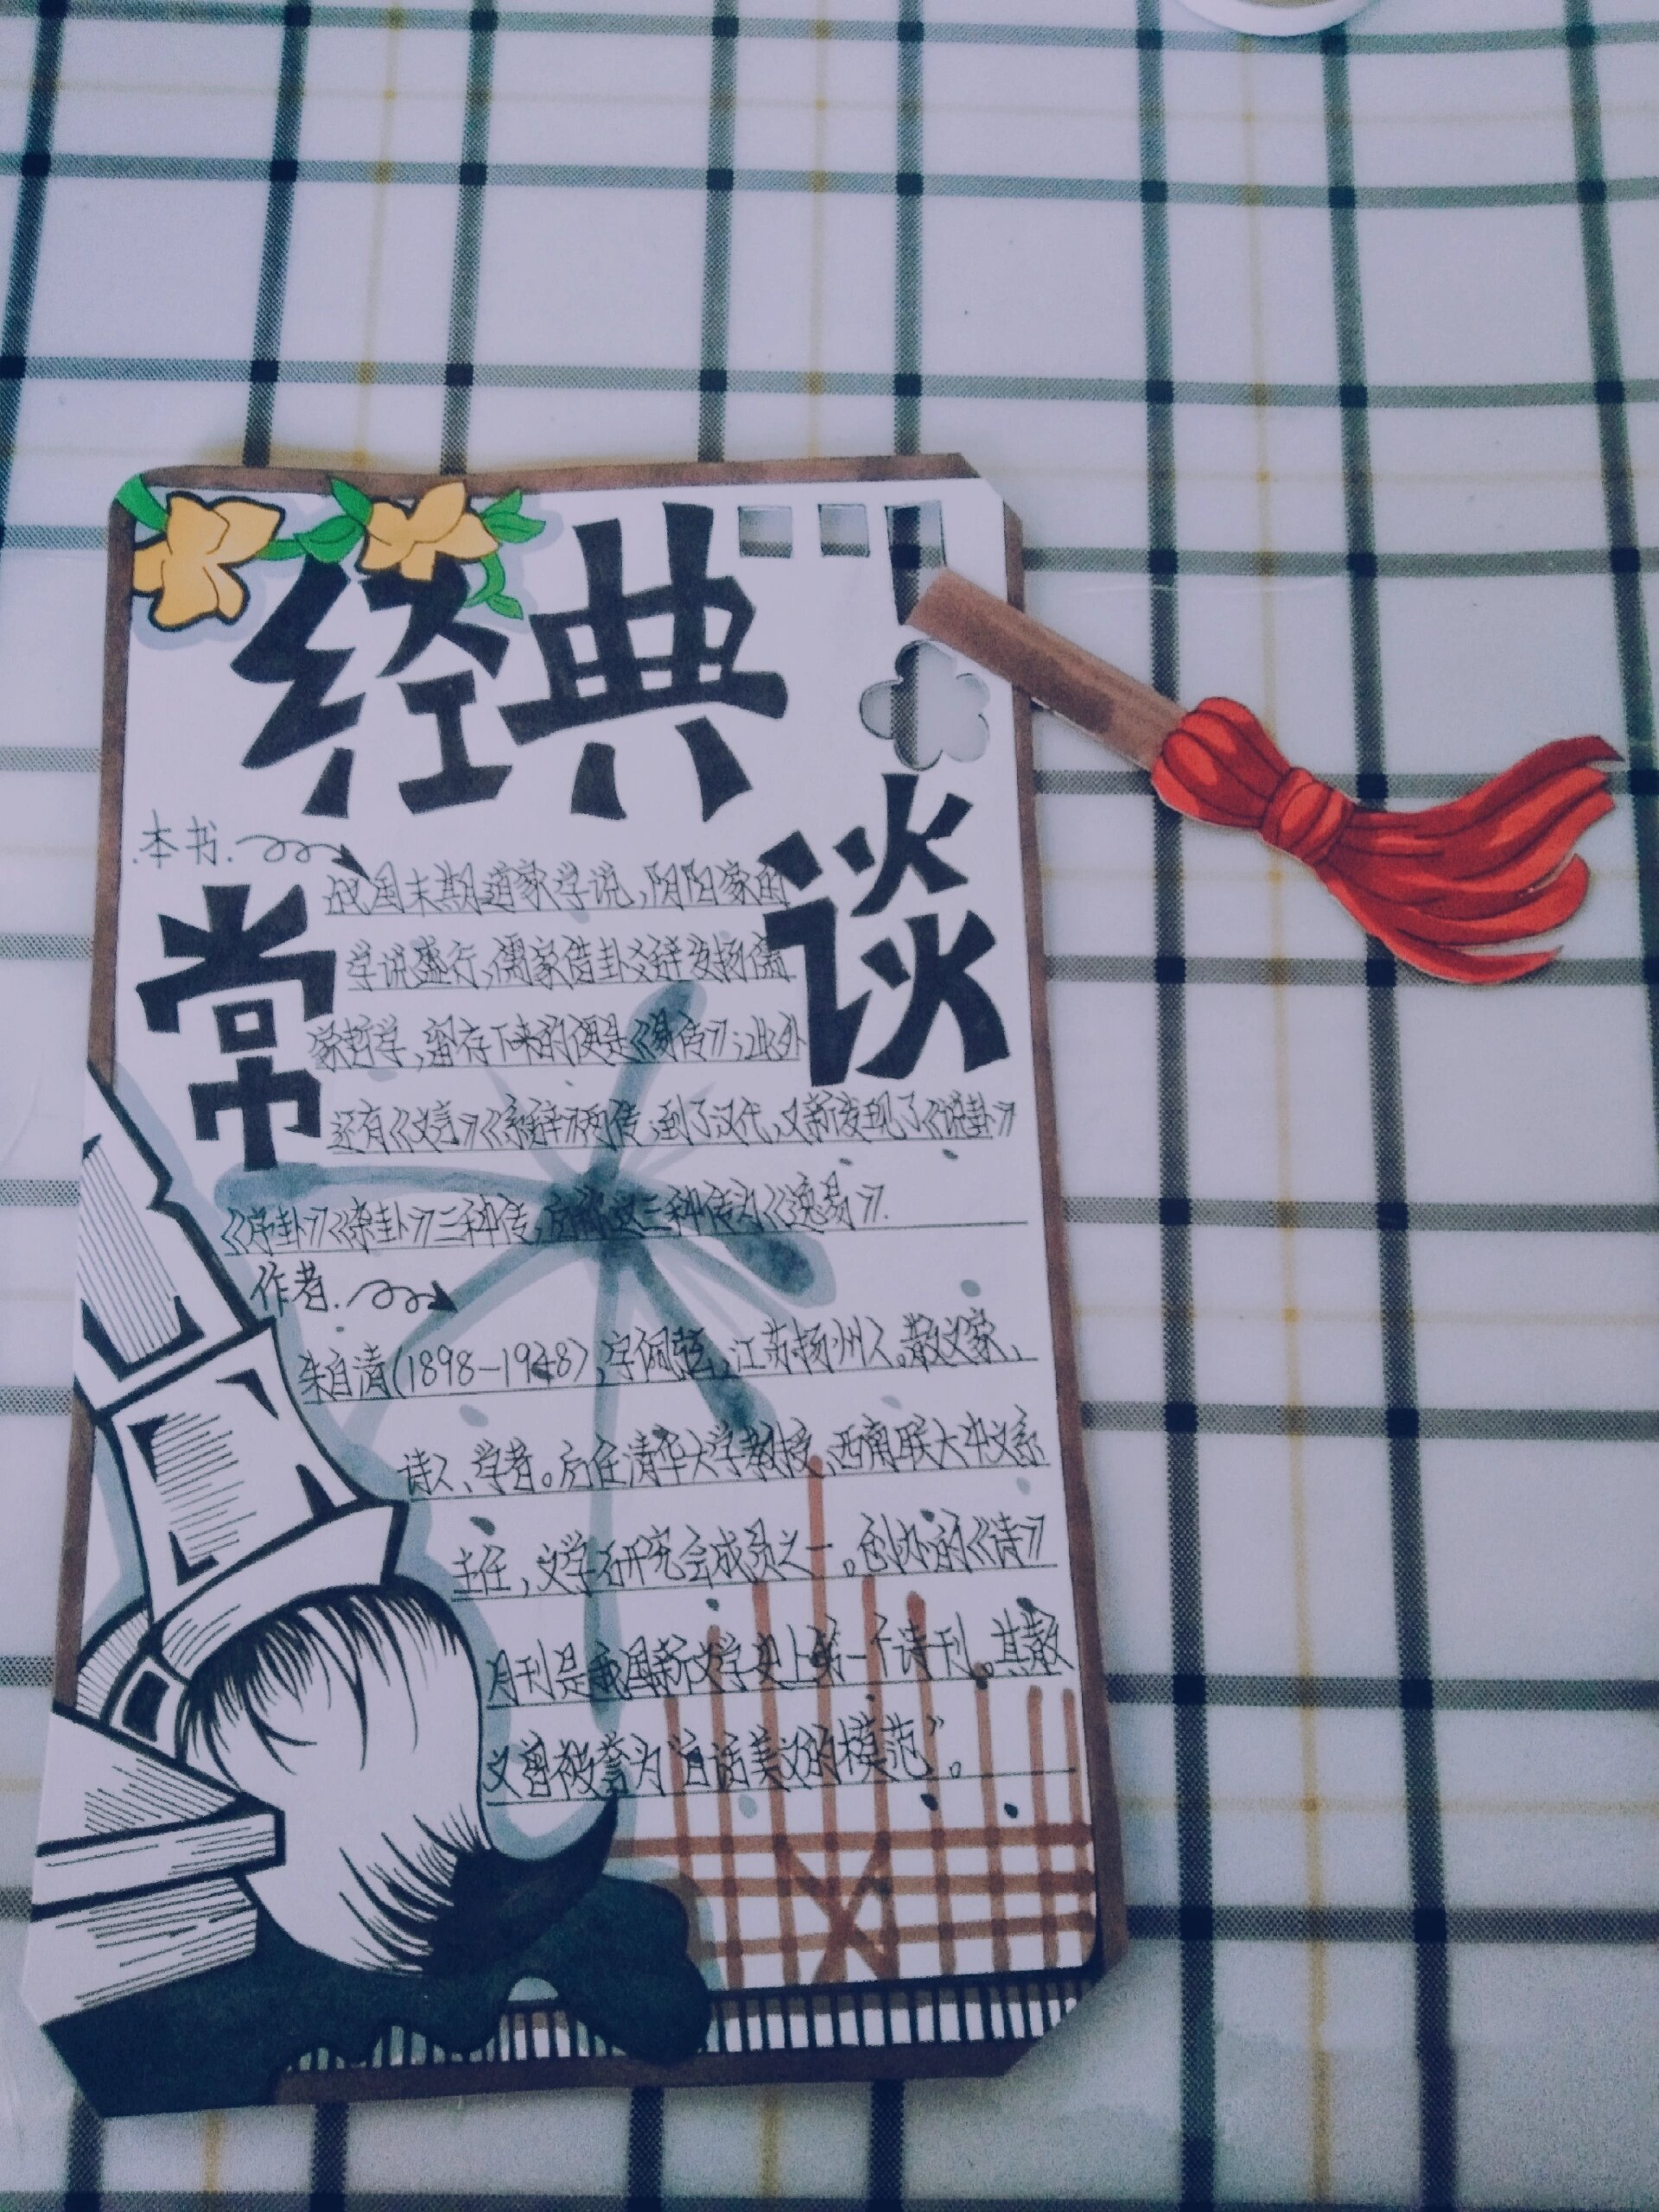 经典
常谈
本书.
战国末期道家学说,阴阳家的
学说盛行,儒家借卦爻辞发扬儒
家哲学,留存下来的便是《易传》;此外
还有《文言》《系辞》两传,到了汉代,又新发现了《说卦》
《序卦》《杂卦》三种传,后称这三种传为《逸易》.
作者.
朱自清(1898-1948),字佩弦,江苏扬州人。散文家、
诗人、学者。后任清华大学教授、西南联大中文系
主任,文学研究会成员之一。创办的《诗》
月刊是我国新文学史上第一个诗刊。其散
文曾被誉为“白话美文的模范”。